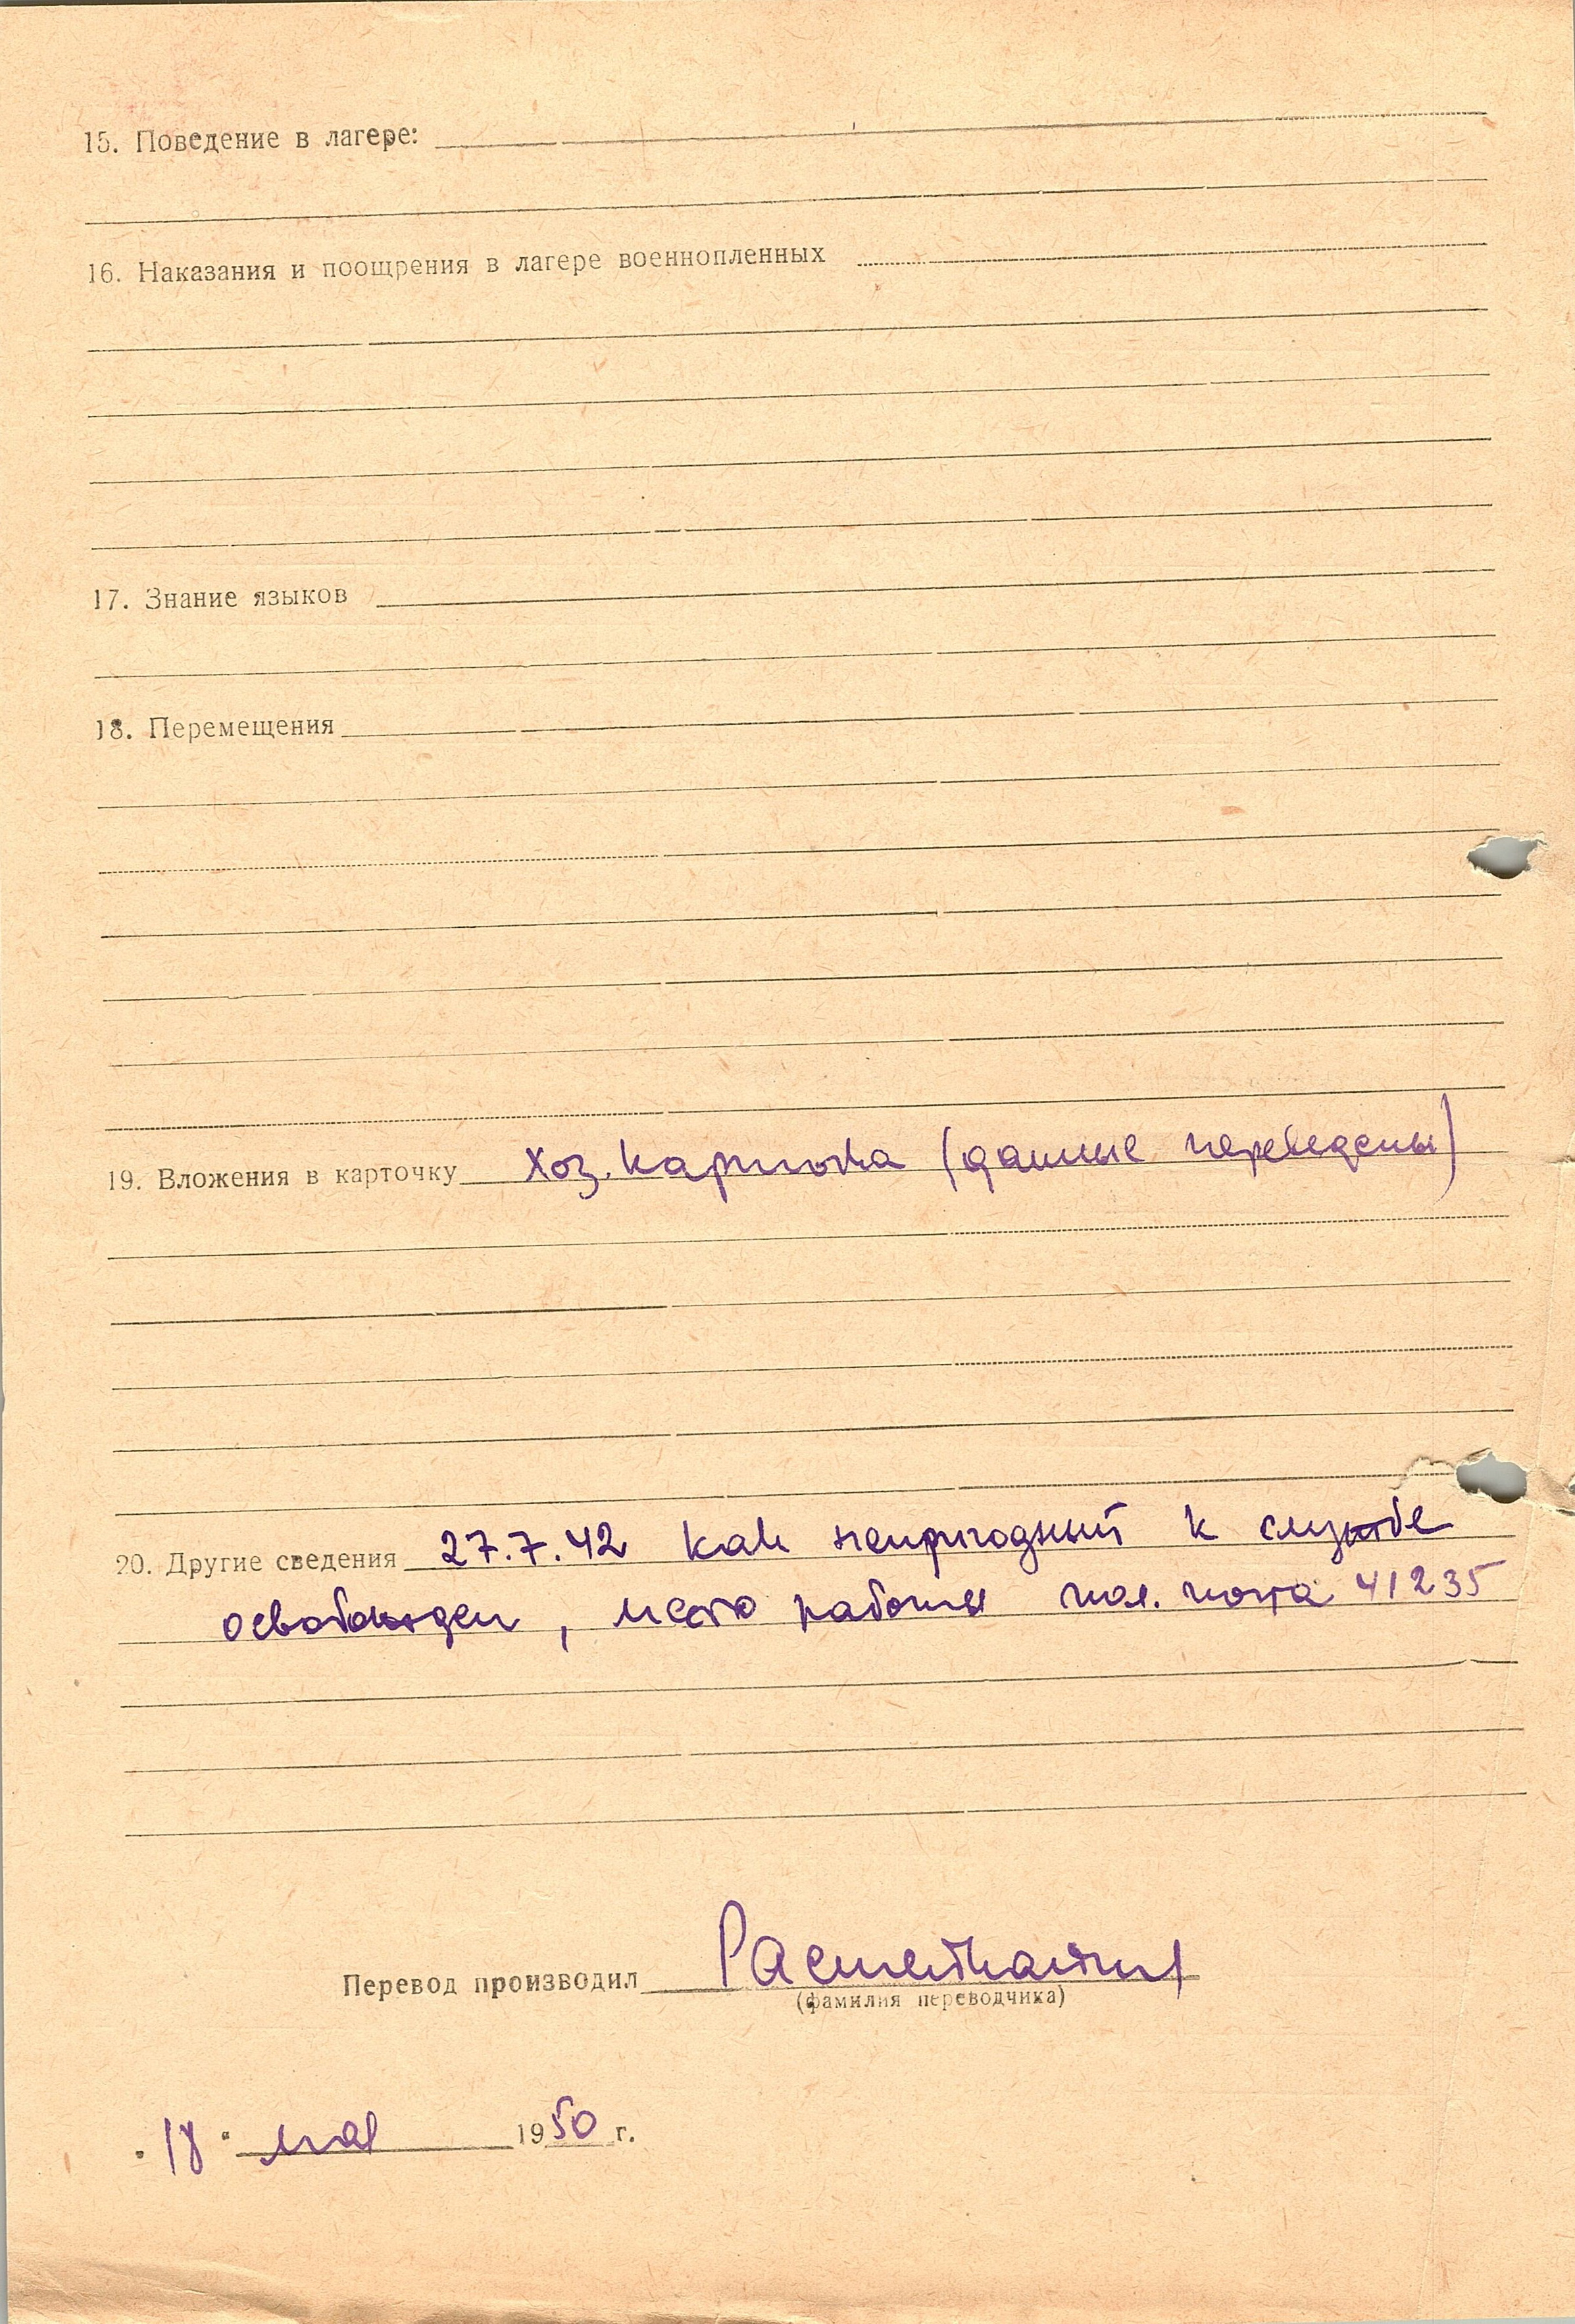 15. Поведение в лагере:
16. Наказания и поощрения в лагере военнопленных
17. Знание языков
18. Перемещения
19. Вложения в карточку хоз. карточка (данные переведены)
20. Другие сведения 27.7.42 как непригодный к службе
освобожден, место работы пол. почта 41235
Перевод производил
(фамилия переводчика)
"18" мая 1950 г.